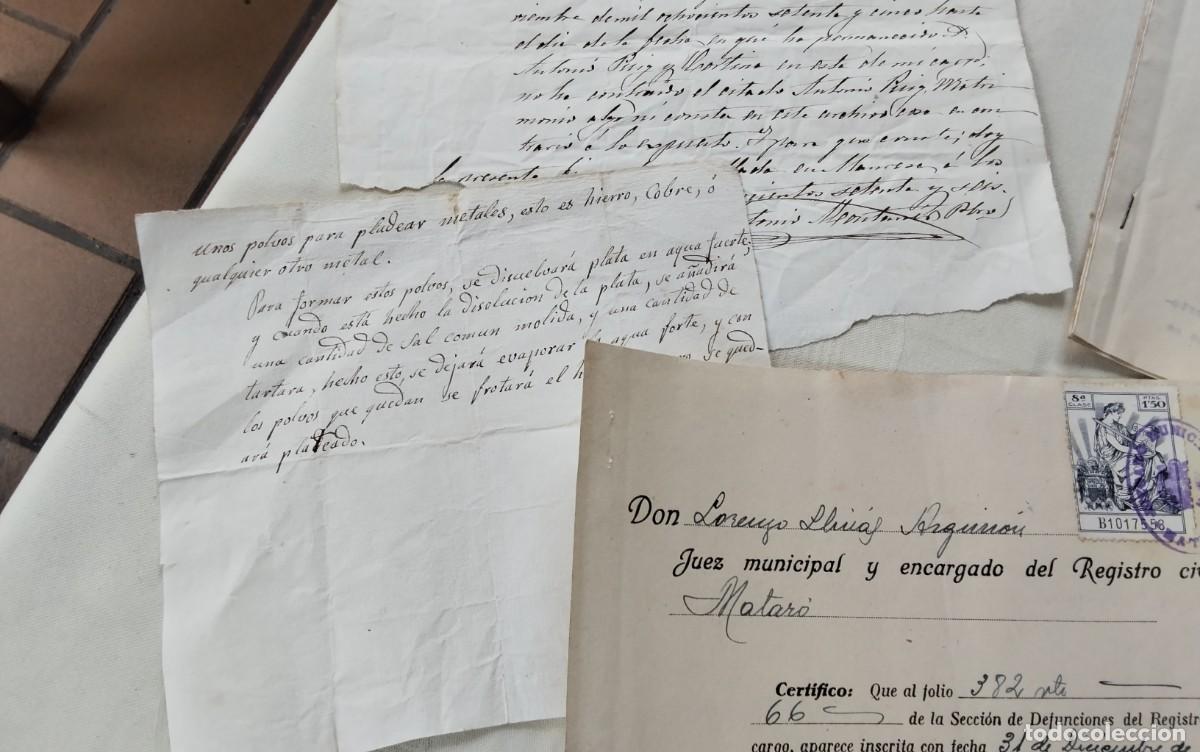 viembre de mil ochocientos setenta y cinco hasta
el dia de la fecha en que ha permanecido D.
Antonio Puig y en este de mi cargo,
no ha contraido el citado Antonio Puig, Matri
monio alguno ni consta en este archivo cosa en con
trario á lo expuesto. Y para que conste, doy
la presente en á los
setenta y seis.
Pbro
unos polvos para pladear metales, esto es hierro, cobre, ó
qualquier otro metal.
Para formar estos polvos, se disuelvará plata en agua fuerte,
y cuando está hecho la disolucion de la plata, se añadirá
una cantidad de sal comun molida, y una cantidad de
tartara, hecho esto, se dejará evaporar agua forte, y con
los polvos que quedan se frotará el h se qued-
ará plateado.
8ª CLASE
PTAS. 1'50
B1017558
Don Lorenzo
Juez municipal y encargado del Registro civ
Mataró
Certifico: Que al folio 382 vto
66 de la Sección de Defunciones del Registr
cargo, aparece inscrita con fecha 31 de Diciembre de
todocoleccion